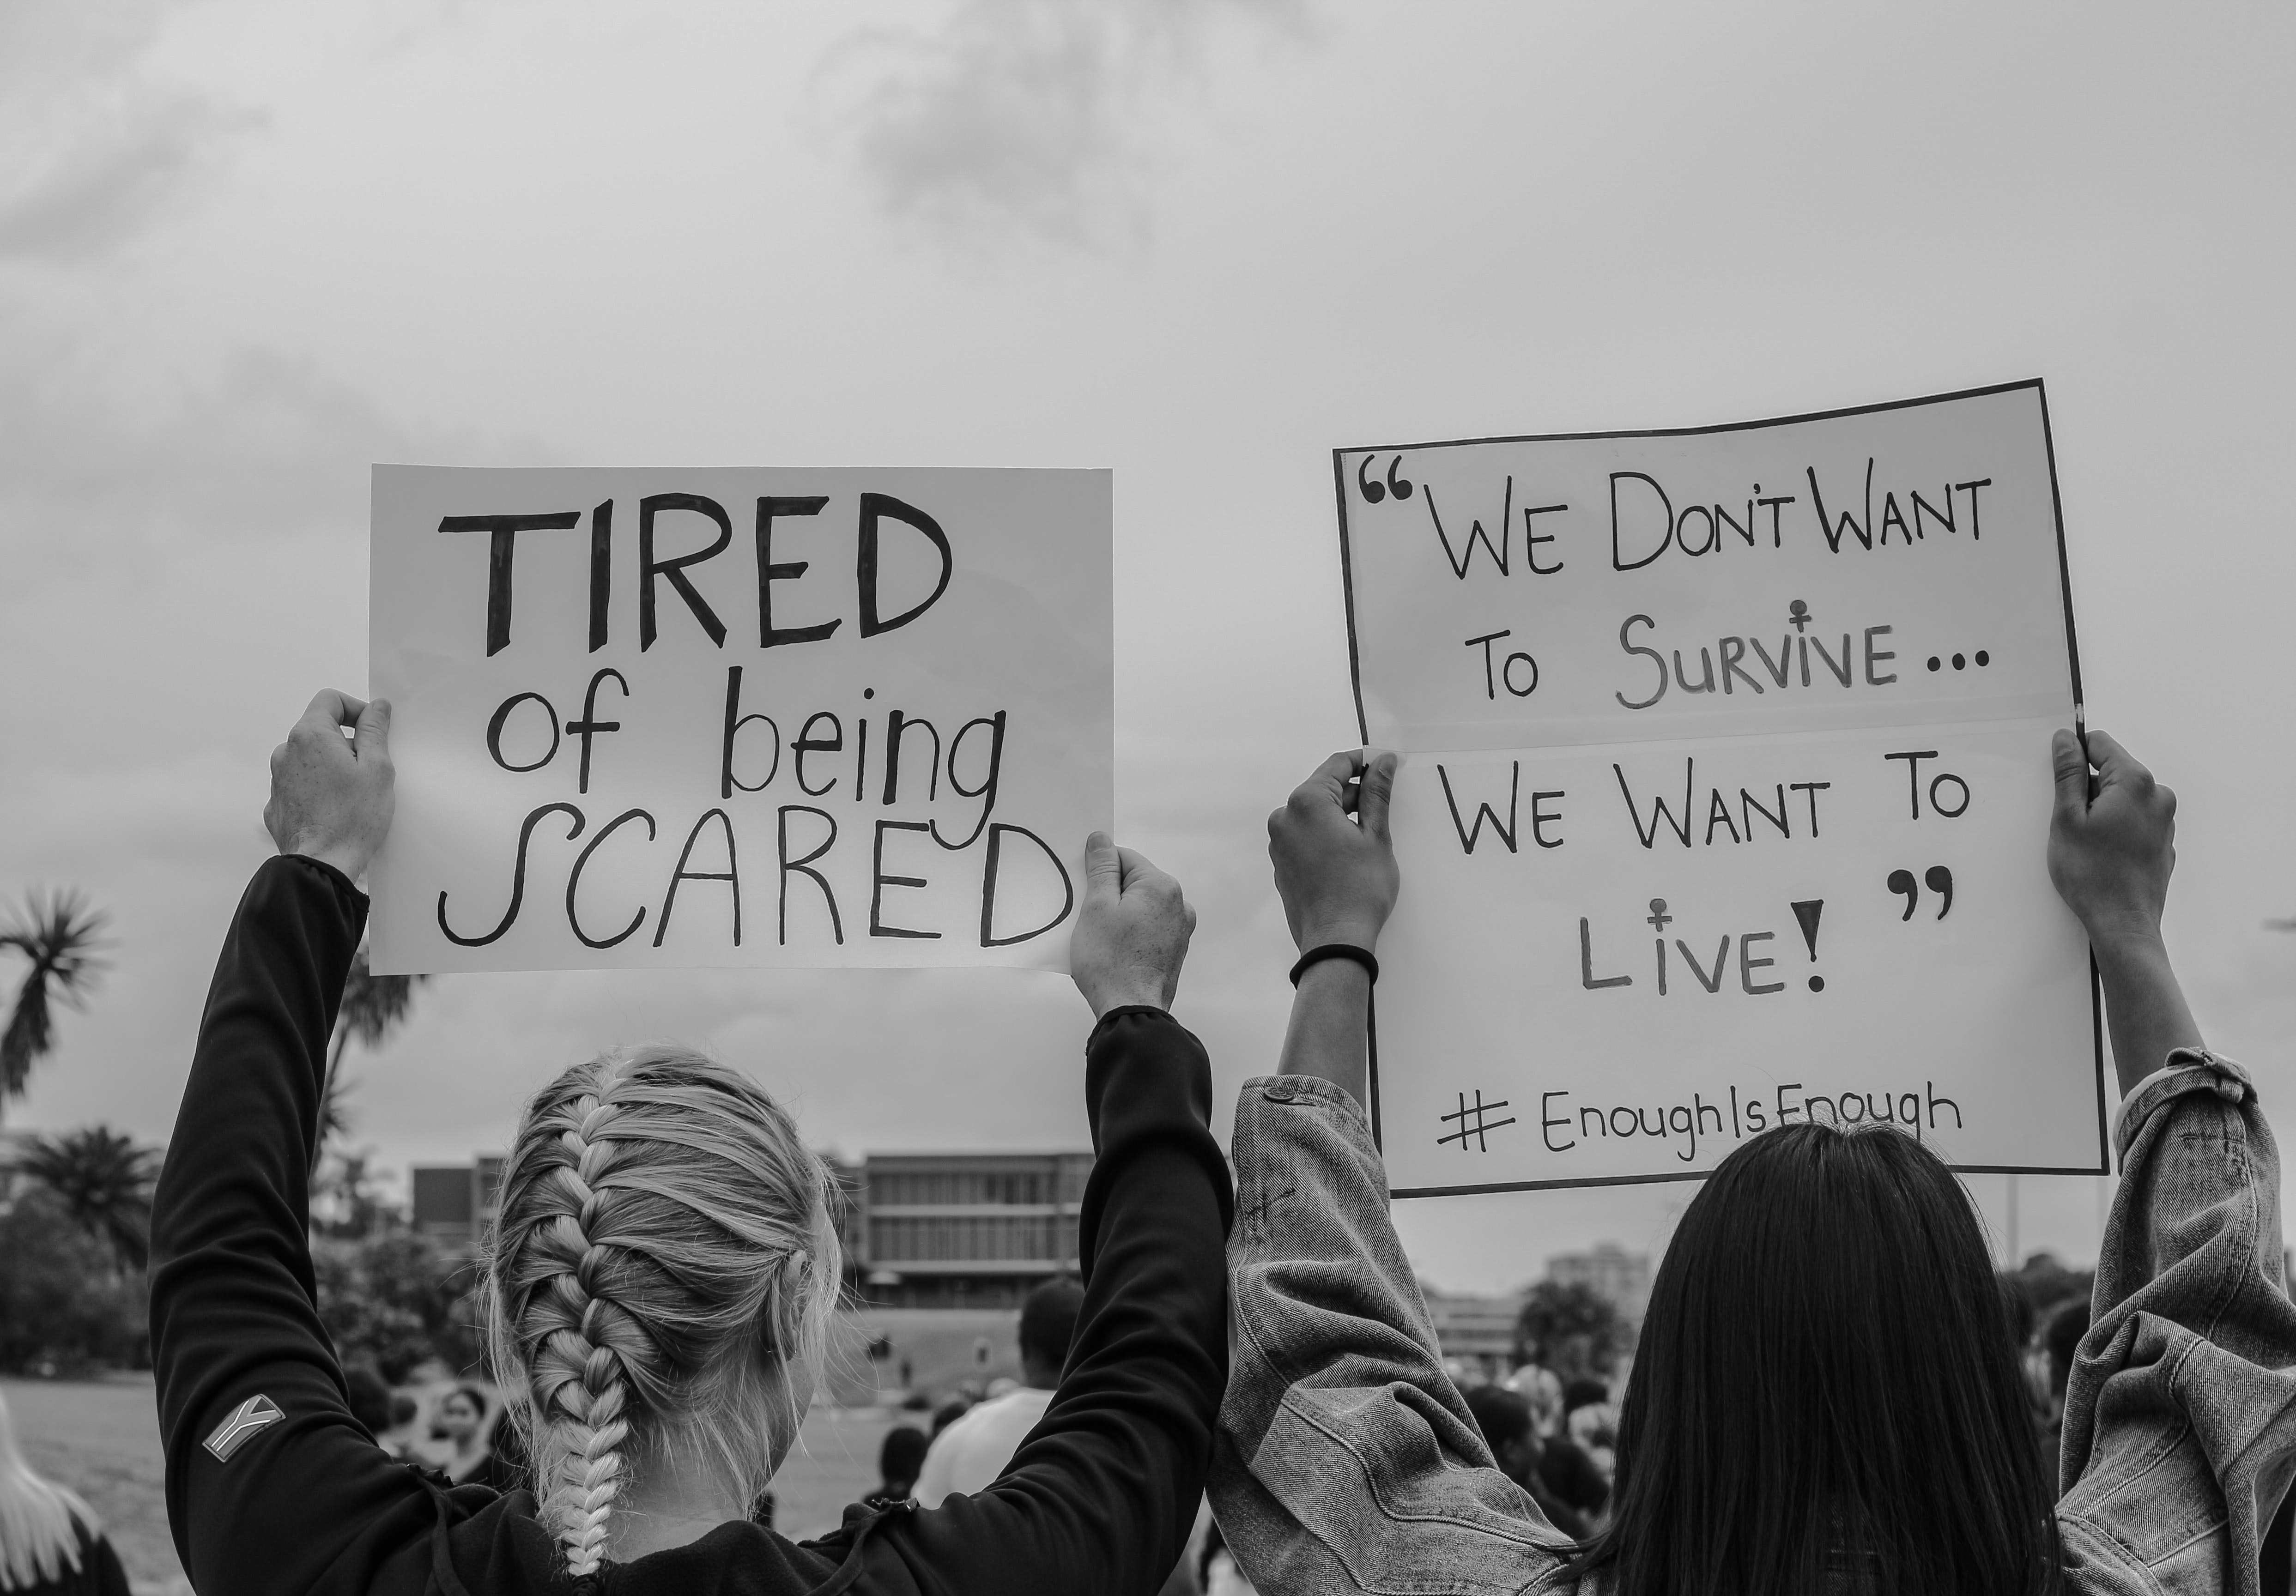 TIRED
of being
SCARED
“WE DON'T WANT
TO SURViVE...
WE WANT TO
LiVE!”
#EnoughIsEnough